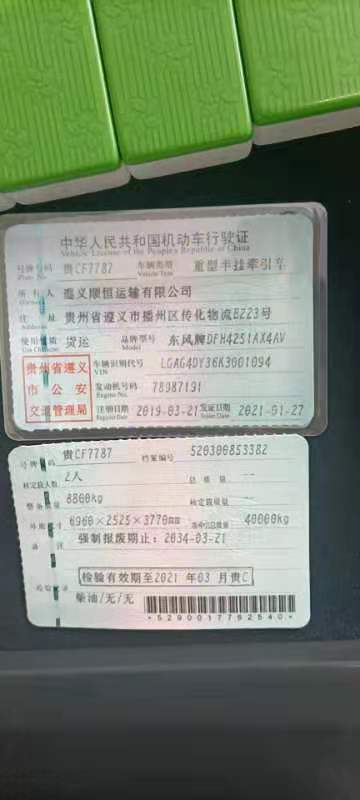 中华人民共和国机动车行驶证
Vehicle License of the People's Republic of China
号牌号码 贵CF7787 车辆类型 重型半挂牵引车
Plate No. Vehicle Type
所有人 遵义顺恒运输有限公司
Owner
住址 贵州省遵义市播州区传化物流BZ23号
Address
使用性质 货运 品牌型号 东风牌DFH4251AX4AV
Use Character Model
贵州省遵义
市公安
交通管理局
车辆识别代号 LGAG4DY36K3001094
VIN
发动机号码 78987191
Engine No.
注册日期 2019-03-21 发证日期 2021-01-27
Register Date Issue Date
号牌号码 贵CF7787 档案编号 520300853382
核定载人数 2人 总质量
整备质量 8800kg 核定载质量
外廓尺寸 6960×2525×3770mm 准牵引总质量 40000kg
备注 强制报废期止:2034-03-21
检验有效期至2021年03月贵C
检验记录
柴油/无/无
*5290017762540*